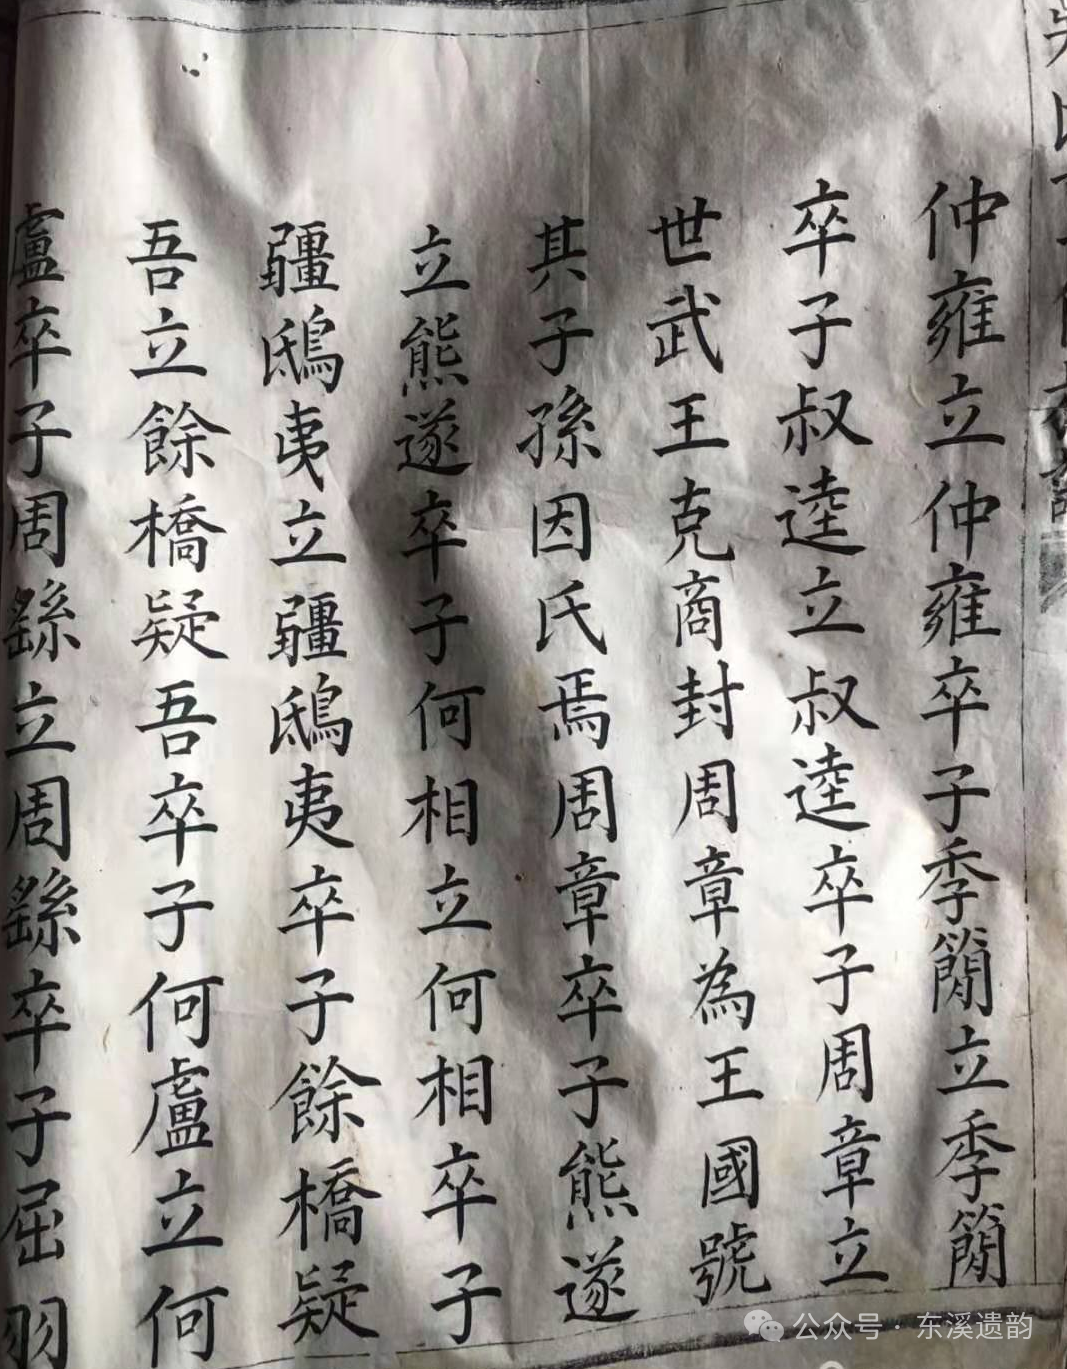 仲雍立仲雍卒子季簡立季簡
卒子叔逵立叔逵卒子周章立
世武王克商封周章為王國號
其子孫因氏焉周章卒子熊遂
立熊遂卒子何相立何相卒子
疆鴟夷立疆鴟夷卒子餘橋疑
吾立餘橋疑吾卒子何盧立何
盧卒子周繇立周繇卒子屈羽
公众号·东溪遗韵